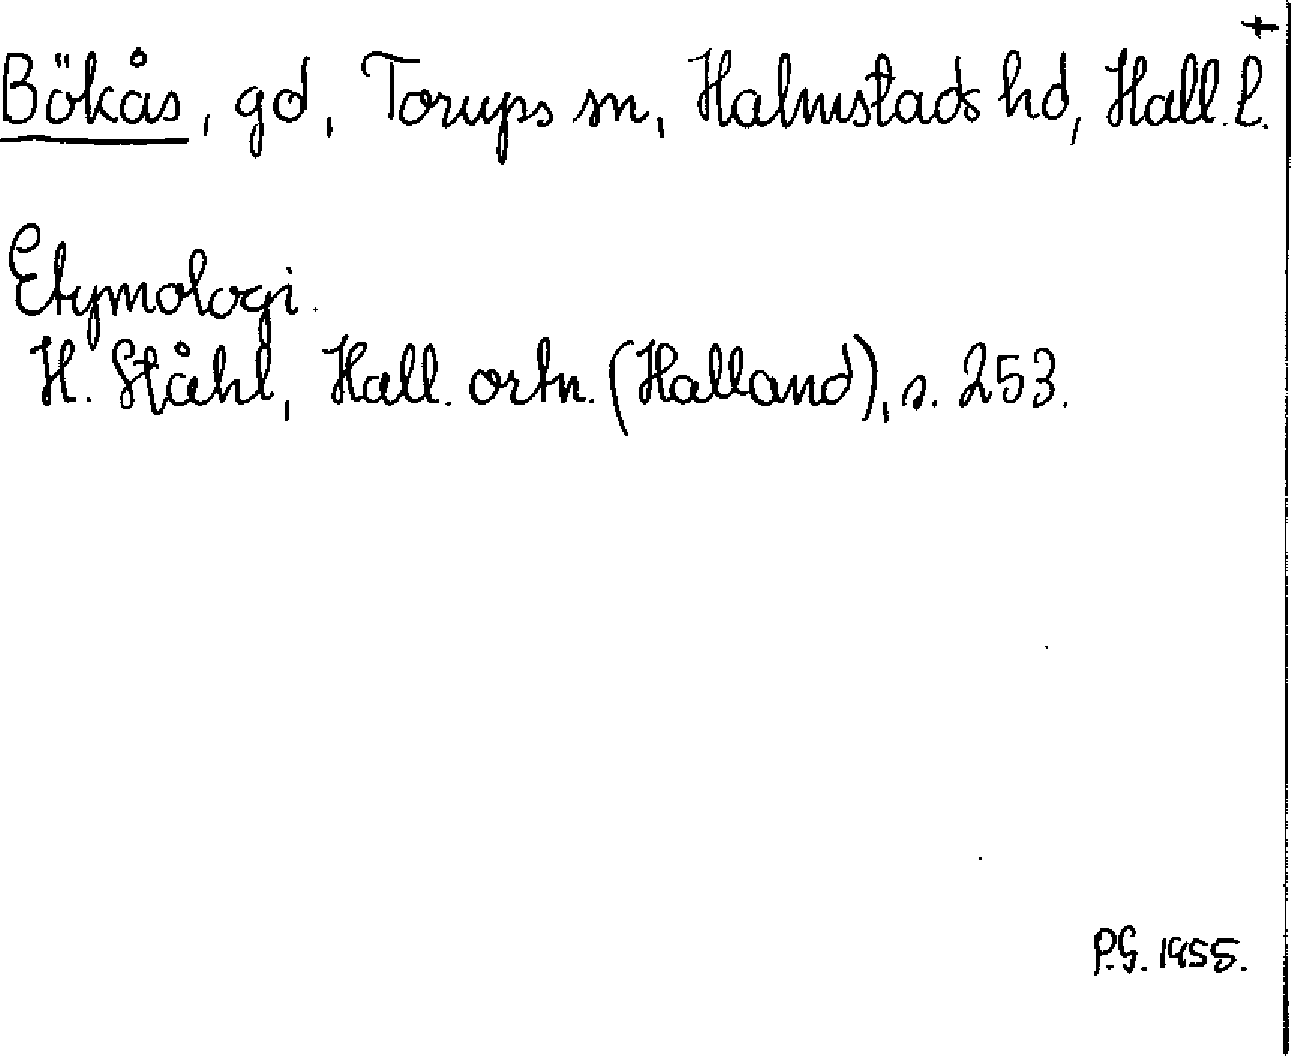 +
Bökås, gd, Torups sn, Halmstads hd, Hall. l.
Etymologi.
H. Ståhl, Hall. ortn. (Halland), s. 253.
P.G. 1955.